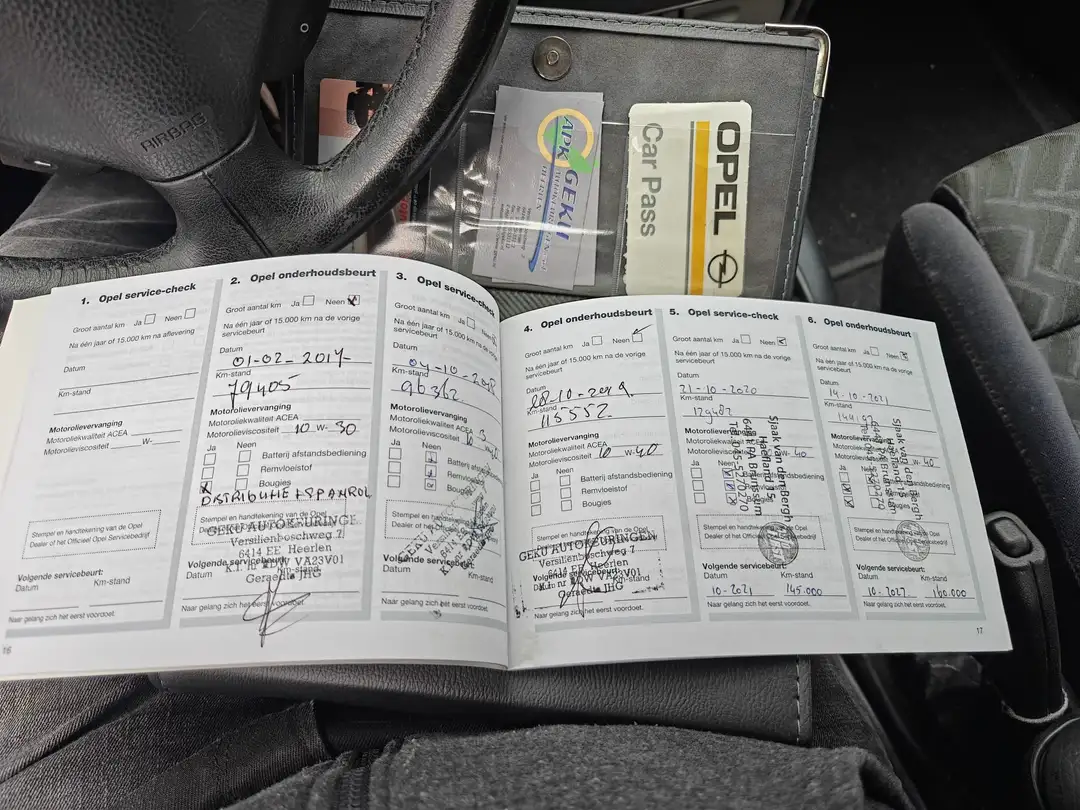 AIRBAG
APK GEKU
OPEL
Car Pass
1. Opel service-check
Groot aantal km Ja Neen
Na één jaar of 15.000 km na aflevering
Datum
Km-stand
Motorolievervanging
Motoroliekwaliteit ACEA
Motorolieviscositeit W-
Stempel en handtekening van de Opel
Dealer of het Officieel Opel Servicebedrijf
Volgende servicebeurt:
Datum Km-stand
Naar gelang zich het eerst voordoet.
16
2. Opel onderhoudsbeurt
Groot aantal km Ja Neen
Na één jaar of 15.000 km na de vorige
servicebeurt
Datum
01-02-2017
Km-stand
79405
Motorolievervanging
Motoroliekwaliteit ACEA
Motorolieviscositeit 10 W-30
Ja Neen
Batterij afstandsbediening
Remvloeistof
Bougies
DISTRIBUTIE + SPANROL
Stempel en handtekening van de Opel
GEKU AUTOKEURINGEN
Versilienboschweg 7
6414 EE Heerlen
K.I. nr VA23V01
Geraedts JHG
Volgende servicebeurt:
Datum Km-stand
Naar gelang zich het eerst voordoet.
3. Opel service-check
Groot aantal km Ja
Na één jaar of 15.000 km na de vorige
servicebeurt
Datum
04-10-2018
Km-stand
96362
Motorolievervanging
Motoroliekwaliteit ACEA
Motorolieviscositeit
Ja Neen
Batterij
Remvloeistof
Bougies
Stempel en handtekening
Dealer of het
Volgende servicebeurt:
Datum Km-stand
Naar gelang zich het eerst voordoet.
4. Opel onderhoudsbeurt
Groot aantal km Ja Neen
Na één jaar of 15.000 km na de vorige
servicebeurt
Datum
08-10-2019
Km-stand
115552
Motorolievervanging
Motoroliekwaliteit ACEA
Motorolieviscositeit 10 W-40
Ja Neen
Batterij afstandsbediening
Remvloeistof
Bougies
Stempel en handtekening van de Opel
Dealer of het Officieel Opel Servicebedrijf
GEKU AUTOKEURINGEN
Versilienboschweg 7
6414 EE Heerlen
VA23V01
Geraedts JHG
Volgende servicebeurt:
Datum Km-stand
Naar gelang zich het eerst voordoet.
5. Opel service-check
Groot aantal km Ja Neen
Na één jaar of 15.000 km na de vorige
servicebeurt
Datum
21-10-2020
Km-stand
129487
Motorolievervanging
Motoroliekwaliteit ACEA
Motorolieviscositeit W-40
Ja Neen
Sjaak van den Bergh
Heufland 15
Brunssum
Tel. 045-5270270
Stempel en handtekening
Dealer of het Officieel Opel Servicebedrijf
Volgende servicebeurt:
Datum Km-stand
10-2021 145.000
Naar gelang zich het eerst voordoet.
6. Opel onderhoudsbeurt
Groot aantal km Ja Neen
Na één jaar of 15.000 km na de vorige
servicebeurt
Datum
14-10-2021
Km-stand
Motorolievervanging
Motoroliekwaliteit ACEA
W-40
Ja
Sjaak van den Bergh
Stempel en handtekening van de Opel
Dealer of het Officieel Opel Servicebedrijf
Volgende servicebeurt:
Datum Km-stand
10-2022 160.000
Naar gelang zich het eerst voordoet.
17